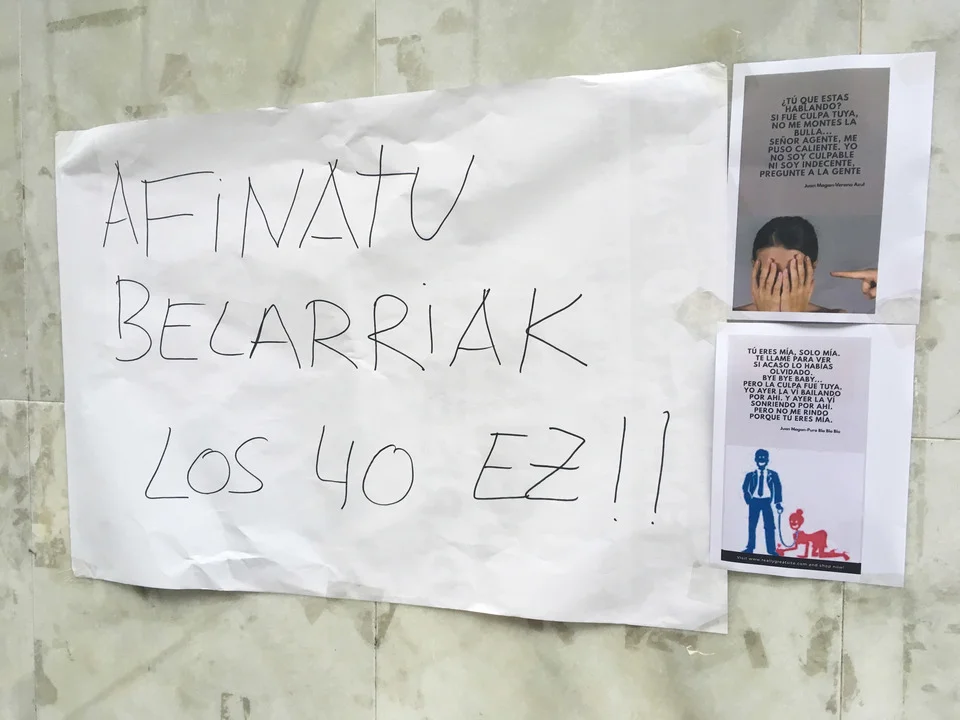 AFiNATU
BELARRiAK
LOS 40 EZ!!
¿TÚ QUE ESTAS
HABLANDO?
SI FUE CULPA TUYA,
NO ME MONTES LA
BULLA...
SEÑOR AGENTE, ME
PUSO CALIENTE, YO
NO SOY CULPABLE
NI SOY INDECENTE,
PREGUNTE A LA GENTE
Juan Magan-Verano Azul
TÚ ERES MÍA, SOLO MÍA.
TE LLAME PARA VER
SI ACASO LO HABÍAS
OLVIDADO.
BYE BYE BABY...
PERO LA CULPA FUE TUYA.
YO AYER LA VÍ BAILANDO
POR AHÍ. Y AYER LA VÍ
SONRIENDO POR AHÍ.
PERO NO ME RINDO
PORQUE TÚ ERES MÍA.
Juan Magan-Puro Bla Bla Bla
Visit www.reallygreatsite.com and shop now!